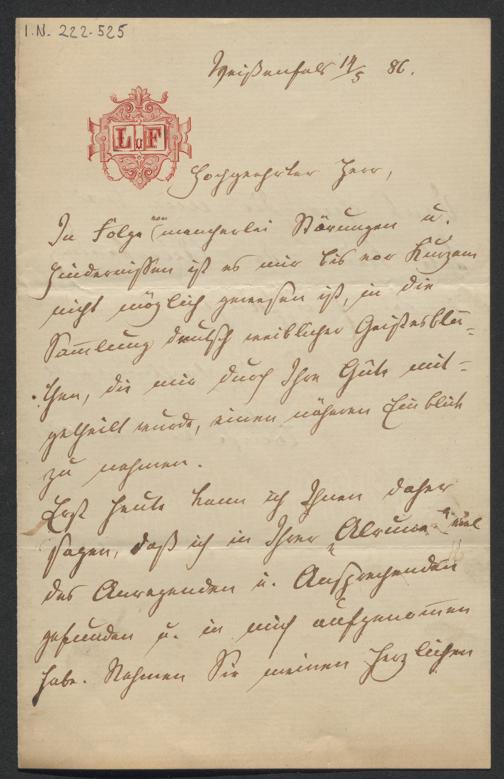 I.N. 222.525
Weißenfels 14/5 86.
L u F
Hochgeehrter Herr,
In Folge von mancherlei Störungen u.
Hindernissen ist es mir bis vor Kurzem
nicht möglich gewesen ist, in die
Sammlung deutsch weiblicher Geistesblü-
then, die mir durch Ihre Güte mit-
getheilt wurde, einen näheren Einblick
zu nehmen.
Erst heute kann ich Ihnen daher
sagen, daß ich in Ihrer „Alruna“ viel
des Anregenden u. Ansprechenden
gefunden u. in mich aufgenommen
habe. Nehmen Sie meinen herzlichen